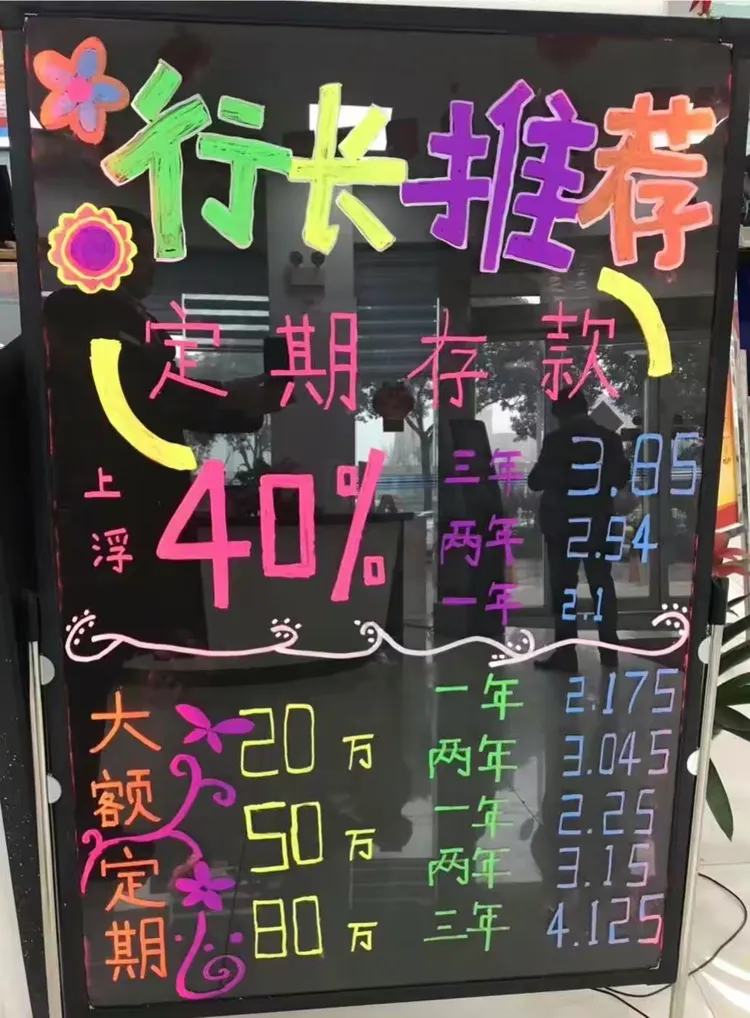 行长推荐
定期存款
上浮 40%
三年 3.85
两年 2.94
一年 2.1
大额定期
20万 一年 2.175
两年 3.045
50万 一年 2.25
两年 3.15
80万 三年 4.125